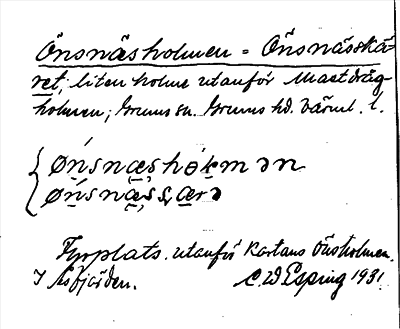 Önsnäsholmen = Önsnässkä-
ret; liten holme utanför Mastdräg-
holmen; Grums sn. Grums hd. Värml. l.
ǿn̲snæ̲s̲hɵ̀ḵmən
ǿn̲snæ̲s̲ʂæ̲rə
Fyrplats. utanför kartans Önsholmen.
I Åsfjärden. C. W Esping 1931.